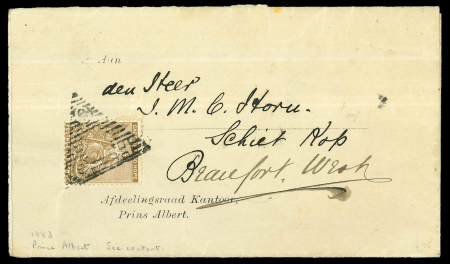 Aan
den Heer
J. M. C. Horn.
Schiet Kop
Beaufort West
Afdeelingsraad Kantoor,
Prins Albert.
1883
Prince Albert. See content.